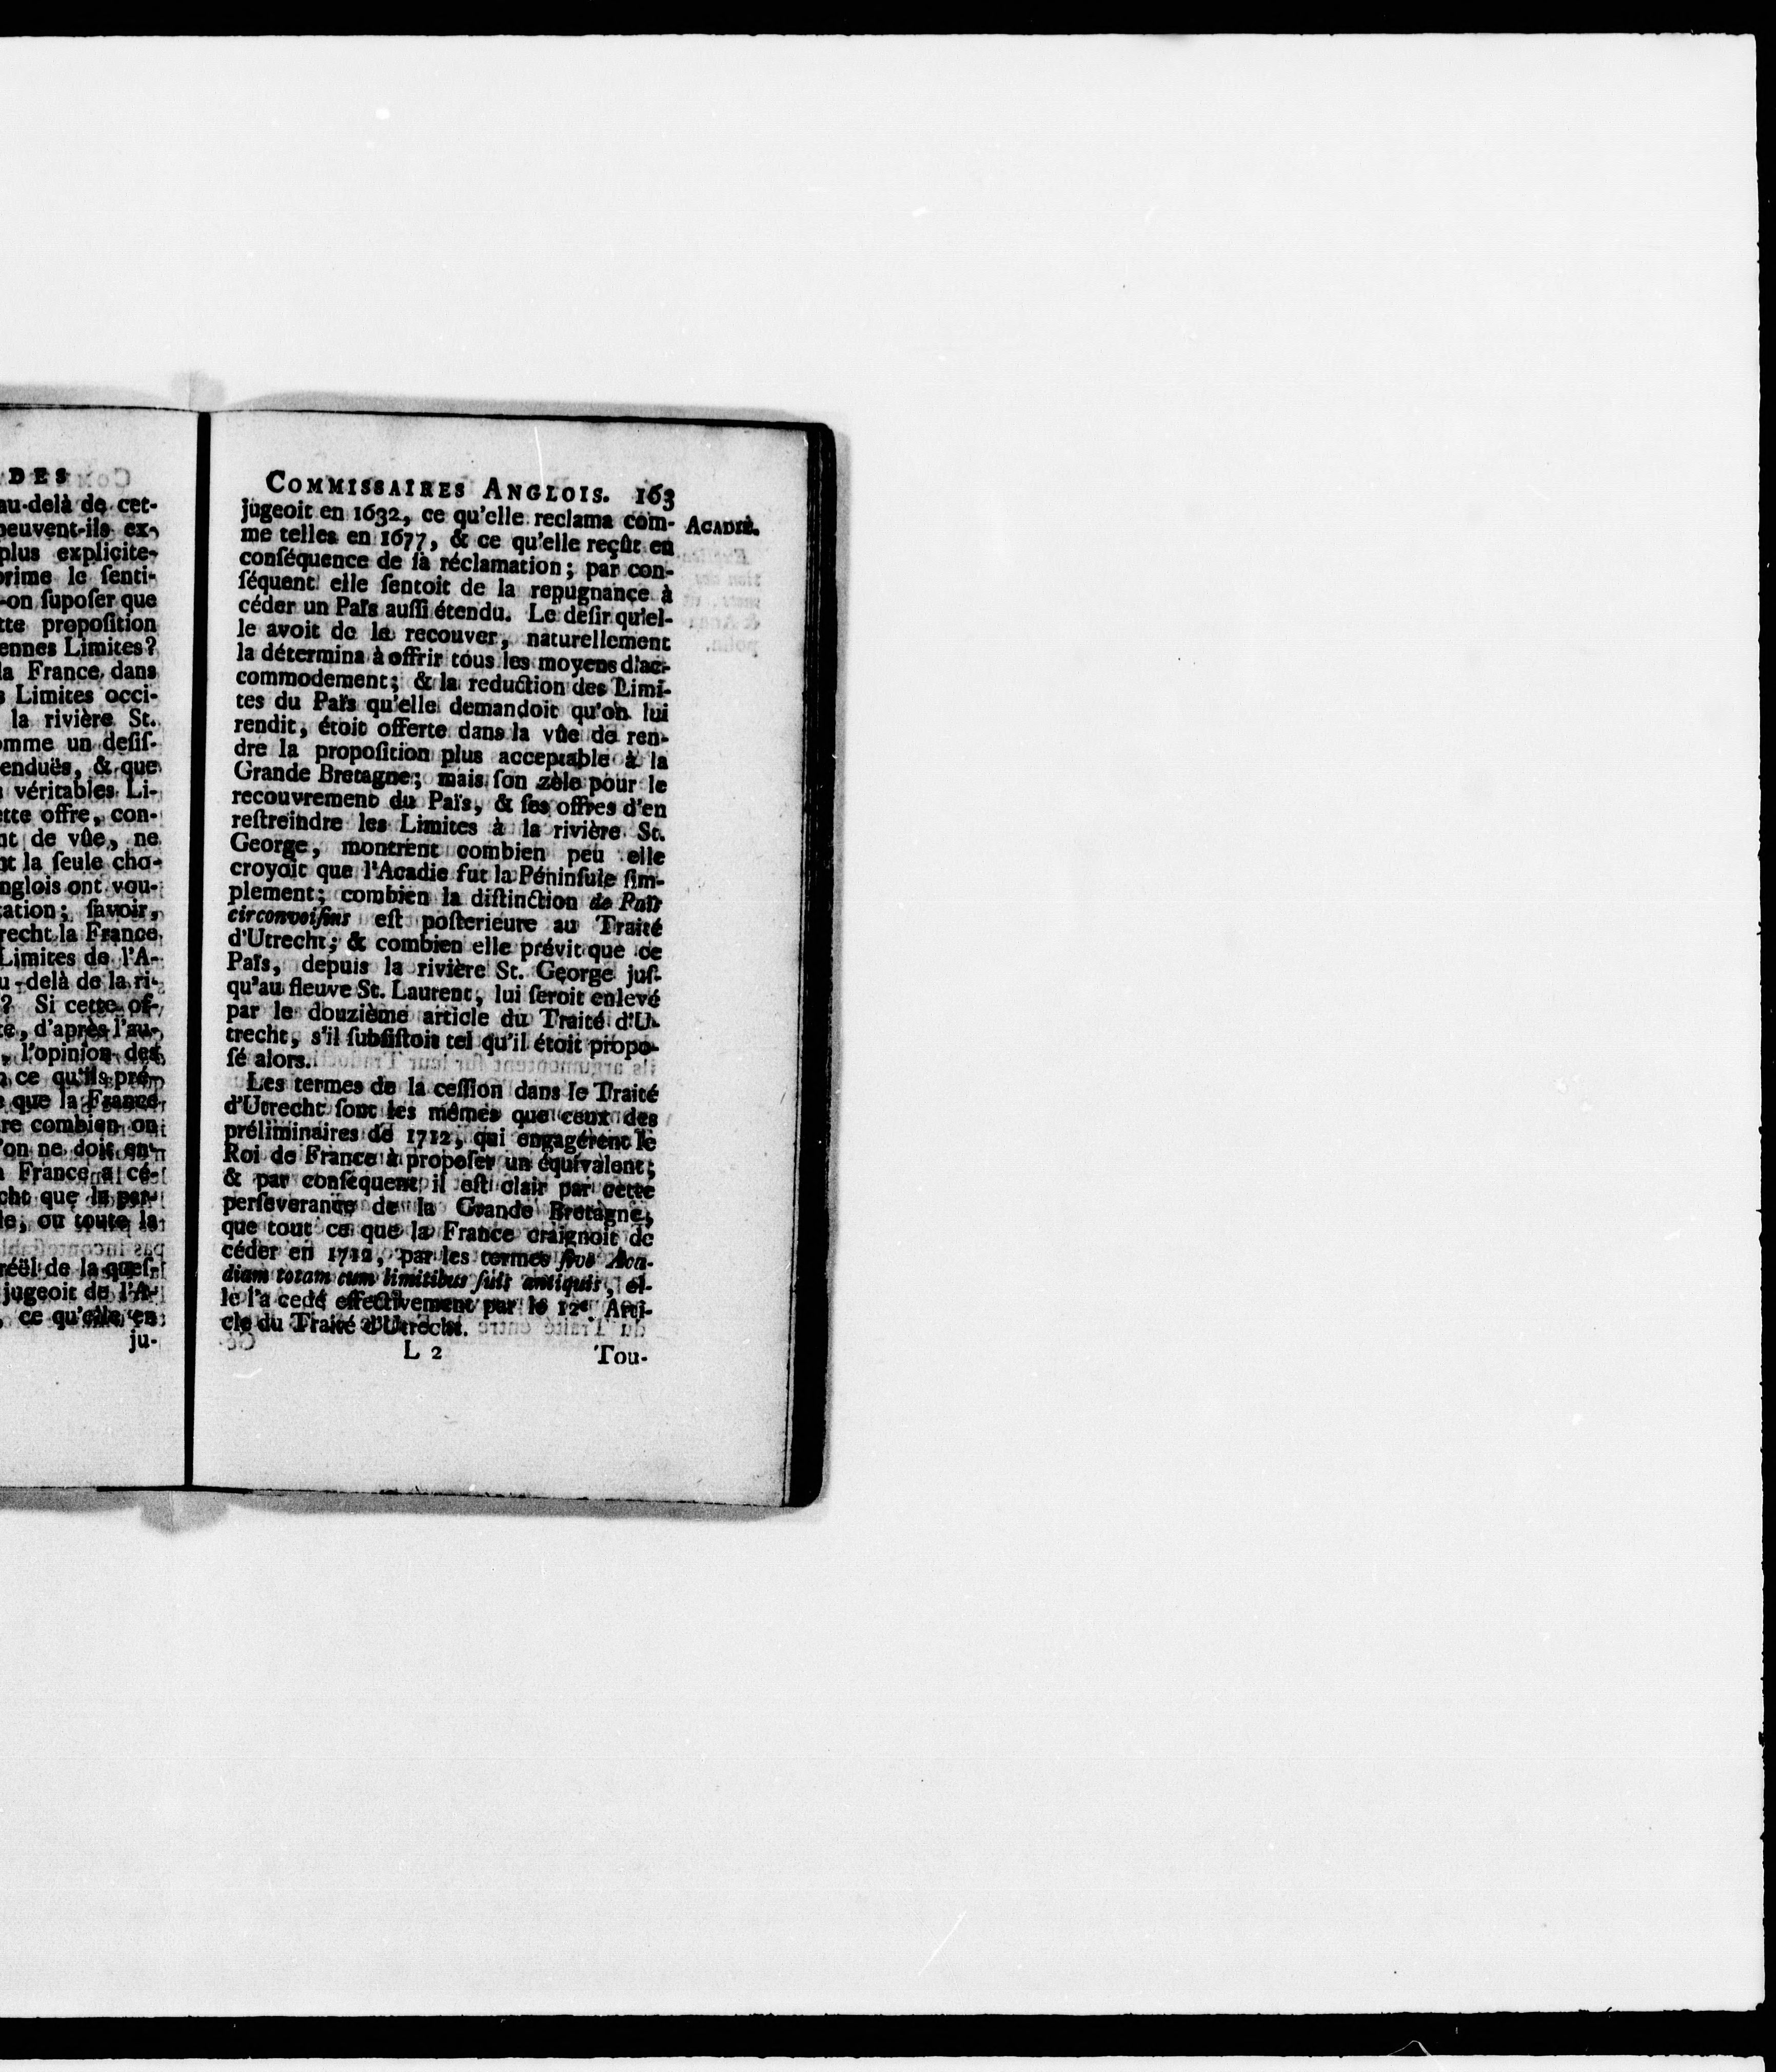 DES
au-delà de cet-
peuvent-ils ex-
plus explicite-
prime le ſenti-
-on ſupoſer que
tte propoſition
ennes Limites?
la France dans
s Limites occi-
la rivière St.
omme un deſiſ-
enduës, & que
véritables Li-
ette offre, con-
nt de vûe, ne
nt la ſeule cho-
nglois ont vou-
tation; ſavoir,
recht la France
Limites de l'A-
u-delà de la ri-
? Si cette of-
te, d'après l'au-
, l'opinion des
ce qu'ils pré-
que la France
re combien on
'on ne doit en-
France a cé-
cht que la par-
le, ou toute la
réël de la queſ-
jugeoit de l'A-
, ce qu'elle en
ju-
COMMISSAIRES ANGLOIS. 163
ACADIE.
jugeoit en 1632, ce qu'elle reclama com-
me telles en 1677, & ce qu'elle reçût en
conſéquence de ſa réclamation; par con-
ſéquent elle ſentoit de la repugnance à
céder un Païs auſſi étendu. Le deſir qu'el-
le avoit de le recouver, naturellement
la détermina à offrir tous les moyens d'ac-
commodement; & la reduction des Limi-
tes du Païs qu'elle demandoit qu'on lui
rendit, étoit offerte dans la vûe de ren-
dre la propoſition plus acceptable à la
Grande Bretagne; mais ſon zèle pour le
recouvrement du Païs, & ſes offres d'en
reſtreindre les Limites à la rivière St.
George, montrent combien peu elle
croyoit que l'Acadie fut la Péninſule ſim-
plement; combien la diſtinction de Païs
circonvoiſins eſt poſterieure au Traité
d'Utrecht; & combien elle prévit que ce
Païs, depuis la rivière St. George juſ-
qu'au fleuve St. Laurent, lui ſeroit enlevé
par le douzième article du Traité d'U-
trecht, s'il ſubſiſtoit tel qu'il étoit propo-
ſé alors.
Les termes de la ceſſion dans le Traité
d'Utrecht ſont les mêmes que ceux des
préliminaires de 1712, qui engagérent le
Roi de France à propoſer un équivalent;
& par conſéquent il eſt clair par cette
perſeverance de la Grande Bretagne,
que tout ce que la France craignoit de
céder en 1712, par les termes ſive Aca-
diam totam cum limitibus ſuis antiquis, el-
le l'a cedé effectivement par le 12e Arti-
cle du Traité d'Utrecht.
L 2
Tou-